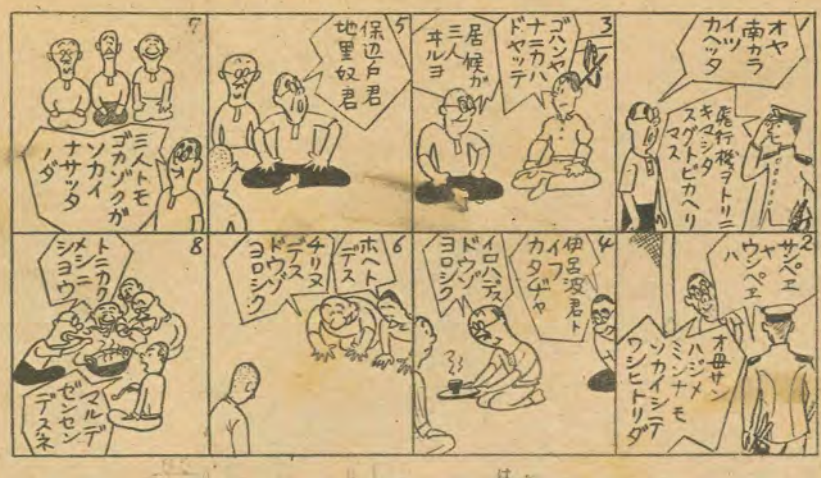 1
オヤ
南カラ
イツ
カヘッタ
飛行機ヲトリニ
キマシタ
スグトビカヘリ
マス
2
サンペヱ
ヤ
ウンペヱ
ハ
オ母サン
ハジメ
ミンナモ
ソカイシテ
ワシヒトリダ
3
ゴハンヤ
ナニカハ
ドヤッテ
居候が
三人
ヰルヨ
4
伊呂波君ト
イフ
カタぢゃ
イロハデス
ドウゾ
ヨロシク
5
保辺戸君
地里奴君
6
ホヘト
デス
チリヌ
デス
ドウゾ
ヨロシク
7
三人トモ
ゴカゾクガ
ソカイ
ナサッタ
ノダ
8
トニカク
メシニ
シヨウ
マルデ
ゼンセン
デスネ